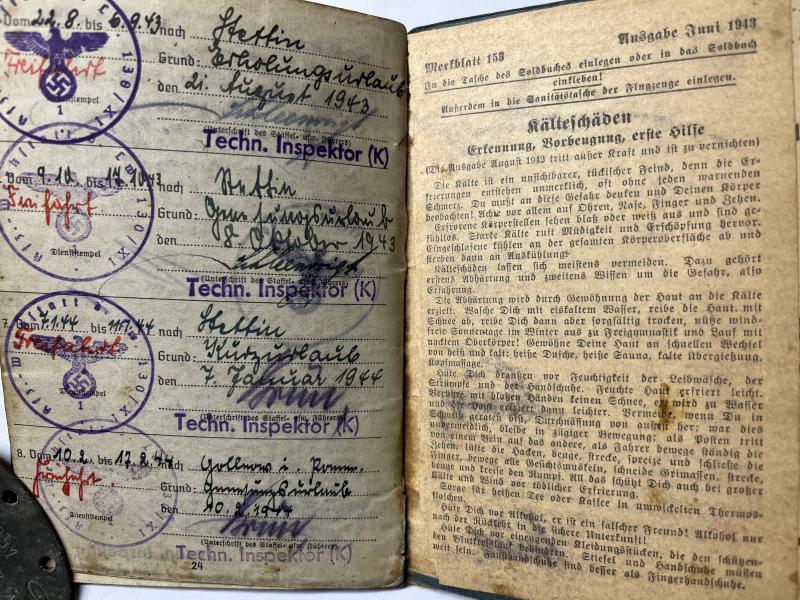 Vom 22.8. bis 6.9.43 nach Stettin
Grund: Erholungsurlaub
den 21. August 1943
Freifahrt
Dienststempel
1
130/XI
(Unterschrift des Staffel- usw. Führers)
Techn. Inspektor (K)
Vom 9.10. bis 17.10.43 nach Stettin
Grund: Genesungsurlaub
den 8. Oktober 1943
Freifahrt
Dienststempel
(Unterschrift des Staffel- usw. Führers)
Techn. Inspektor (K)
7. Vom 7.1.44 bis 11.1.44 nach Stettin
Grund: Kurzurlaub
den 7. Januar 1944
Freifahrt
Dienststempel
1
130/XI
(Unterschrift des Staffel- usw. Führers)
Techn. Inspektor (K)
8. Vom 10.2. bis 17.2.44 nach Gollnow i. Pomm.
Grund: Genesungsurlaub
den 10.2.1944
Freifahrt
Dienststempel
(Unterschrift des Staffel- usw. Führers)
Techn. Inspektor (K)
24
Merkblatt 153 Ausgabe Juni 1943
In die Tasche des Soldbuches einlegen oder in das Soldbuch
einkleben!
Außerdem in die Sanitätstasche der Flugzeuge einlegen.
Kälteschäden
Erkennung, Vorbeugung, erste Hilfe
(Die Ausgabe August 1942 tritt außer Kraft und ist zu vernichten)
Die Kälte ist ein unsichtbarer, tückischer Feind, denn die Er-
frierungen entstehen unmerklich, oft ohne jeden warnenden
Schmerz. Du mußt an diese Gefahr denken und Deinen Körper
beobachten! Achte vor allem auf Ohren, Nase, Finger und Zehen.
Erfrorene Körperstellen sehen blaß oder weiß aus und sind ge-
fühllos. Starke Kälte ruft Müdigkeit und Erschöpfung hervor.
Eingeschlafene kühlen an der gesamten Körperoberfläche ab und
sterben dann an Auskühlung.
Kälteschäden lassen sich meistens vermeiden. Dazu gehört
erstens Abhärtung und zweitens Wissen um die Gefahr, also
Erfahrung.
Die Abhärtung wird durch Gewöhnung der Haut an die Kälte
erzielt. Wasche Dich mit eiskaltem Wasser, reibe die Haut mit
Schnee ab, reibe Dich dann aber sorgfältig trocken, nütze wind-
freie Sonnentage im Winter aus zu Freigymnastik und Lauf mit
nacktem Oberkörper! Gewöhne Deine Haut an schnellen Wechsel
von heiß und kalt: heiße Dusche, heiße Sauna, kalte Übergießung,
Kopfmassage.
Hüte Dich draußen vor Feuchtigkeit der Leibwäsche, der
Strümpfe und der Handschuhe. Feuchte Haut erfriert leicht.
Berühre mit bloßen Händen keinen Schnee, er wird zu Wasser
und die Haut erfriert dann leichter. Vermeide, wenn Du in
Schweiß geraten bist, Durchnässung von außen her; war dies
unvermeidlich, bleibe in zügiger Bewegung: als Posten tritt
von einem Bein auf das andere, als Fahrer bewege ständig die
Zehen, lüfte die Hacken, beuge, strecke, spreize und schließe die
Finger, bewege alle Gesichtsmuskeln, schneide Grimassen,
beuge und kreise den Rumpf. All das schützt Dich auch bei großer
Kälte und Wind vor tödlicher Erfrierung.
Sorge für heißen Tee oder Kaffee in umwickelten Thermos-
flaschen.
Hüte Dich vor Alkohol, er ist ein falscher Freund! Alkohol nur
nach der Rückkehr in die sichere Unterkunft!
Hüte Dich vor einengenden Kleidungsstücken, die den
den Blutkreislauf behindern. Stiefel und Handschuhe müssen
weit sein. Fausthandschuhe sind besser als Fingerhandschuhe.